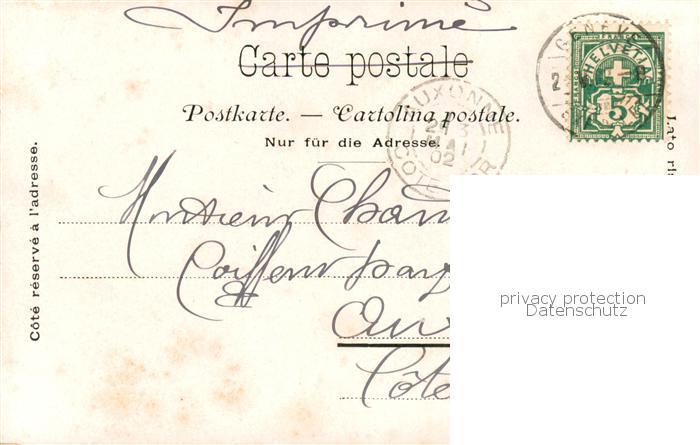 Imprimé
Carte postale
Postkarte. — Cartolina postale.
Nur für die Adresse.
Côté réservé à l'adresse.
Lato ris
GENÈVE
FRANCO
HELVETIA
5
AUXONNE
MAI
02
CÔTE D'OR
Monsieur
Coiffeur
Aux
Côte
privacy protection
Datenschutz